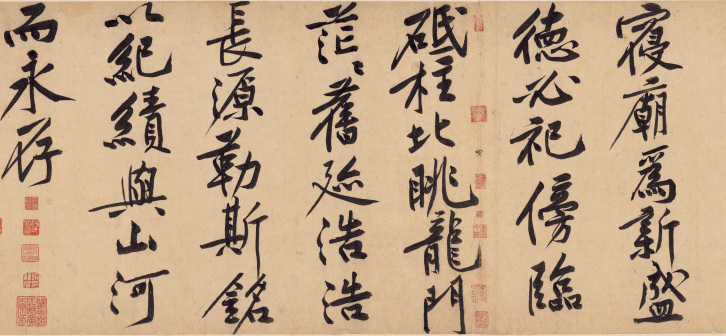 寢廟爲新盛
德必祀傍臨
砥柱北眺龍門
茫〻舊迹浩浩
長源勒斯銘
以紀績與山河
而永存